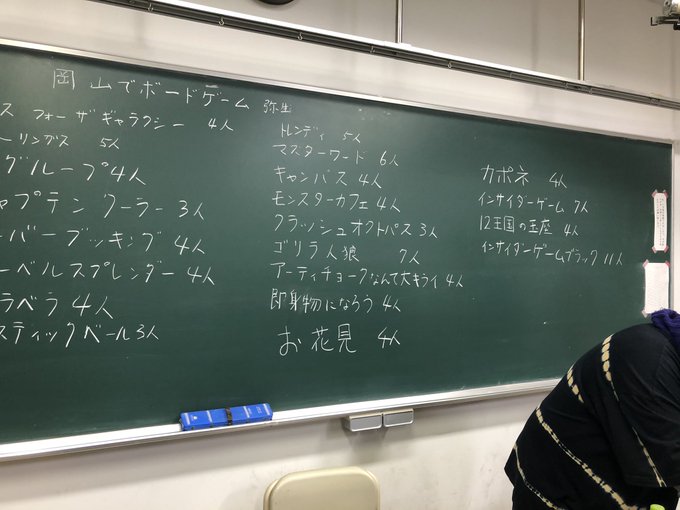 岡山でボードゲーム 弥生
ス フォーザギャラクシー 4人
ーリングス 5人
グループ 4人
ャプテンクーラー 3人
ーバーブッキング 4人
ーベルスプレンダー 4人
ラベラ 4人
スティックベール 3人
トレンディ 5人
マスターワード 6人
キャンバス 4人
モンスターカフェ 4人
クラッシュオクトパス 3人
ゴリラ人狼 7人
アーティチョークなんて大キライ 4人
即身物になろう 4人
お花見 4人
カポネ 4人
インサイダーゲーム 7人
12王国の玉座 4人
インサイダーゲームブラック 11人